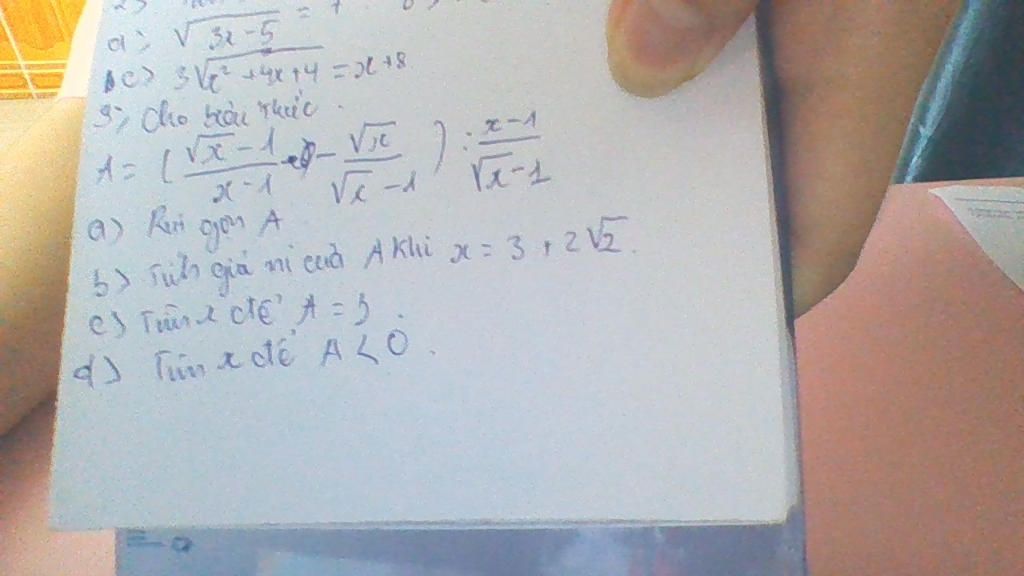 a; √(3x-5) = 7
c) 3√(x² + 4x + 4) = x + 8
3; Cho biểu thức.
A = ( (√x - 1)/(x - 1) - √x/(√x - 1) ) : (x - 1)/(√x - 1)
a) Rút gọn A
b) Tính giá trị của A khi x = 3 + 2√2.
c) Tìm x để A = 3.
d) Tìm x để A < 0.